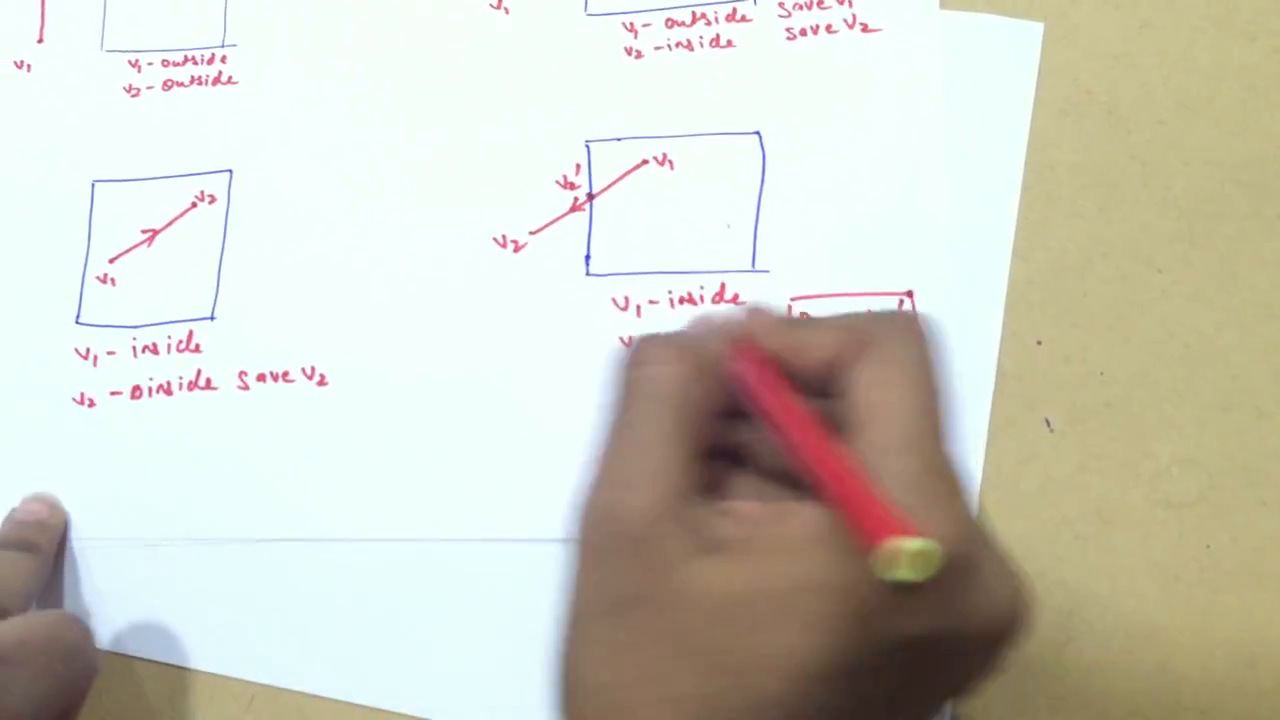 v1
v1 - outside
v2 - outside
v1
v1 - outside
v2 - inside
save v1
save v2
v2
v1
v1 - inside
v2 - inside save v2
v2'
v1
v2
v1 - inside